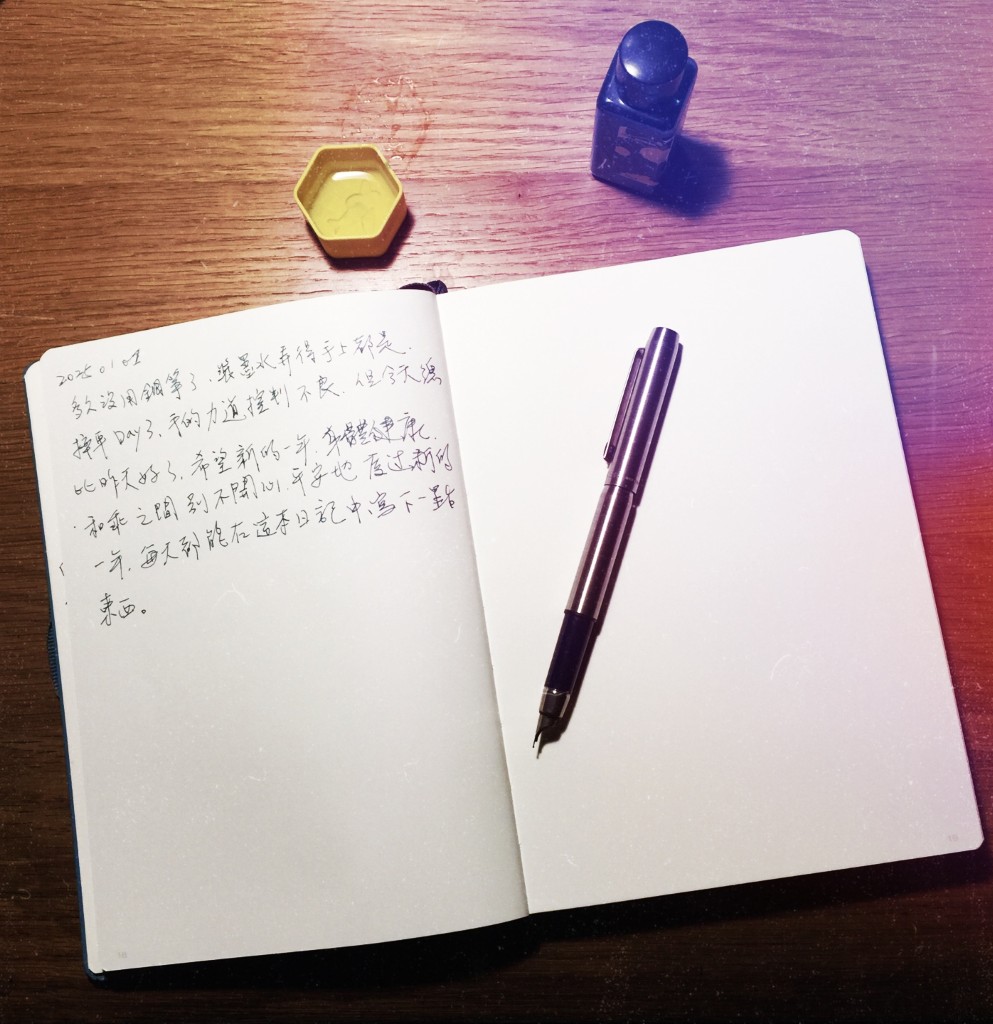 2025 01 01
多久沒用鋼筆了，裝墨水弄得手上都是.
揮單 Day3，手的力道控制不良. 但今天總
比昨天好了，希望新的一年，身體健康，
和乖之間別不開心，平安地度过新的
一年，每天都能在這本日記中寫下一點
東西。